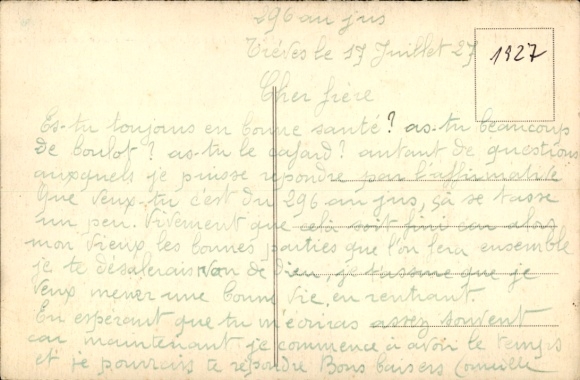 296 au jus
Trèves le 17 Juillet 27
1927
Cher frère
Es-tu toujours en bonne santé? as-tu beaucoup
de boulot? as-tu le cafard? autant de questions
auxquels je puisse répondre par l'affirmative
Que veux-tu c'est du 296 au jus, çà se tasse
un peu. Vivement que celà soit fini car alors
mon vieux les bonnes parties que l'on fera ensemble
je te désalerais Non de Dieu, je t'assure que je
veux mener une bonne vie, en rentrant.
En espérant que tu m'écriras assez souvent
car maintenant je commence à avoir le temps
et je pourrais te répondre Bons baisers